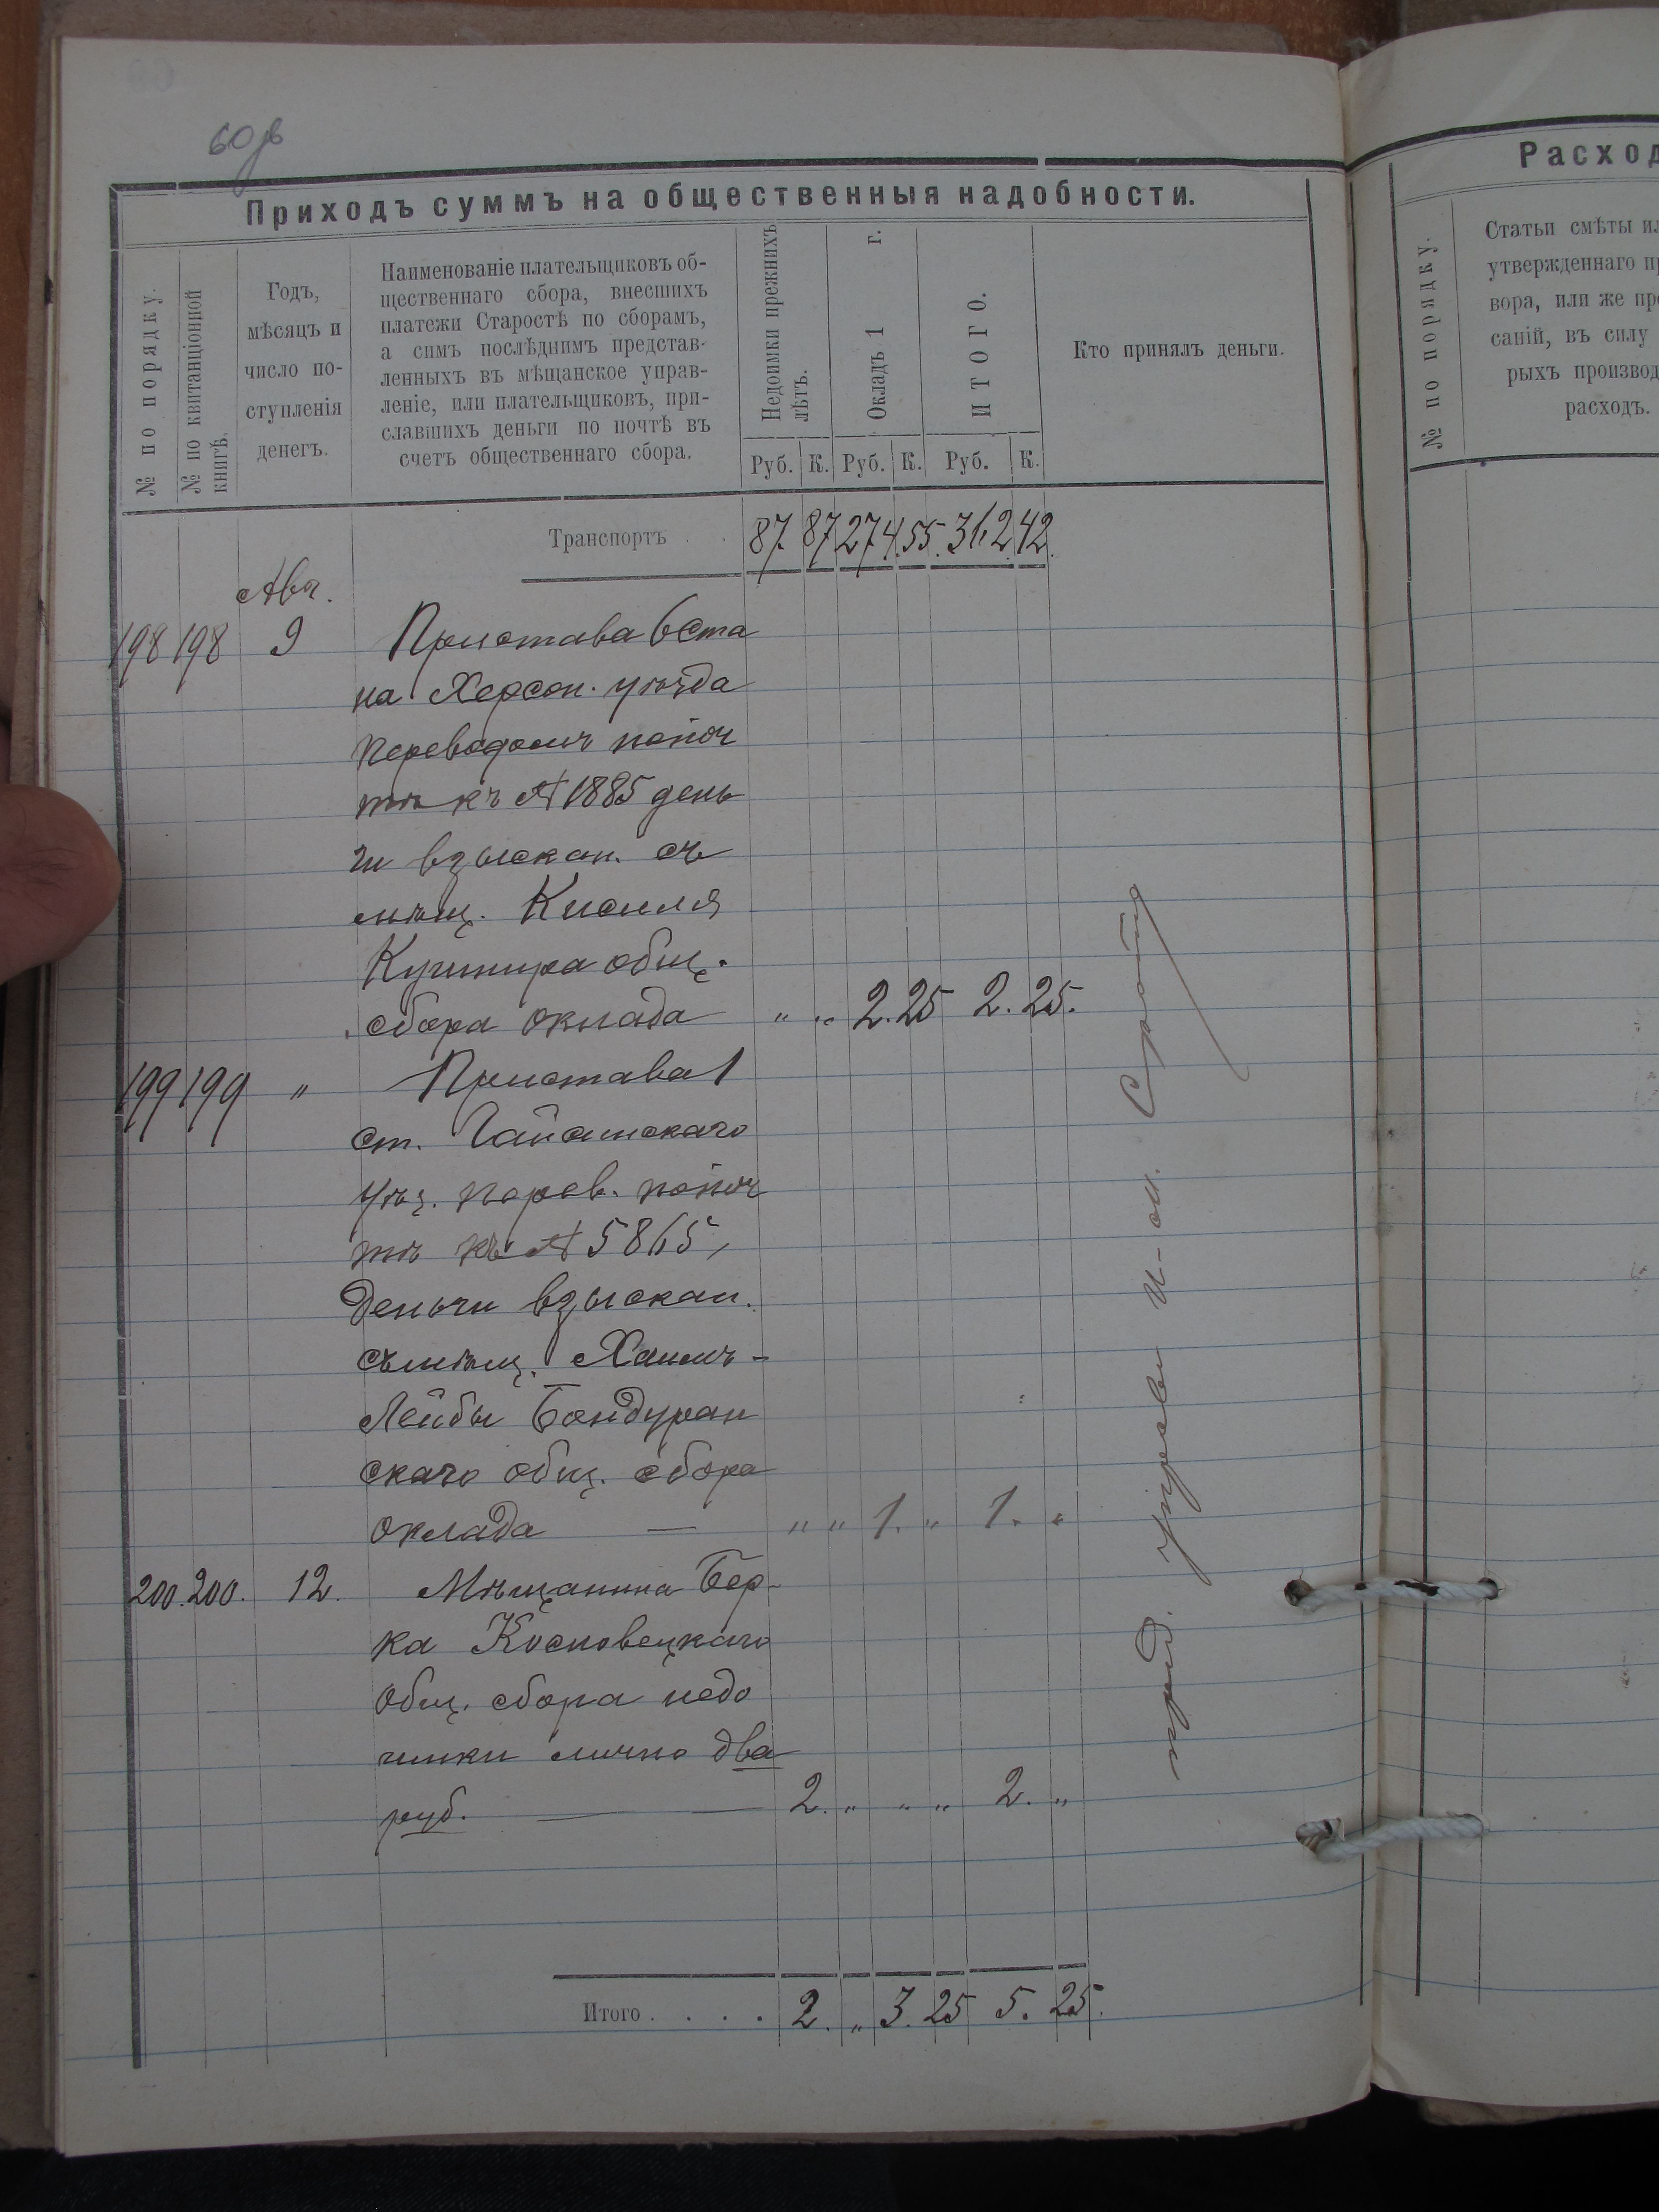 60 об
Приходъ суммъ на общественныя надобности.
№ по порядку.
№ по квитанціонной книгѣ.
Годъ,
мѣсяцъ и
число по-
ступленія
денегъ.
Наименованіе плательщиковъ об-
щественнаго сбора, внесшихъ
платежи Старостѣ по сборамъ,
а симъ послѣднимъ представ-
ленныхъ въ мѣщанское управ-
леніе, или плательщиковъ, при-
славшихъ деньги по почтѣ въ
счетъ общественнаго сбора.
Недоимки прежнихъ
лѣтъ.
Окладъ 1 г.
ИТОГО.
Руб. К. Руб. К. Руб. К.
Кто принялъ деньги.
Транспортъ . . 87. 87 274. 55. 312 42.
Авг.
198 198 9 Пристава 6 Ста
на Херсон. уѣзда
переводомъ по поч
тѣ къ № 1885 день
ги взыскан. съ
мѣщ. Кисиля
Кушнира общ.
сбора оклада " " 2. 25 2. 25.
199 199 " Пристава 1
ст. Гайсинскаго
уѣз. перев. по поч
тѣ къ № 5865,
деньги взыскан.
съ мѣщ. Хаимъ-
Лейбы Бондуран
скаго общ. сбора
оклада — " " 1. " 1. "
200. 200. 12. Мѣщанина Бер-
ка Косновецкаго
общ. сбора недо
имки лично два
руб. — — 2. " " " 2. "
Итого . . . . 2. " 3. 25 5. 25.
Расход
№ по порядку.
Статьи смѣты ил
утвержденнаго пр
вора, или же пре
саній, въ силу
рыхъ производ
расходъ.